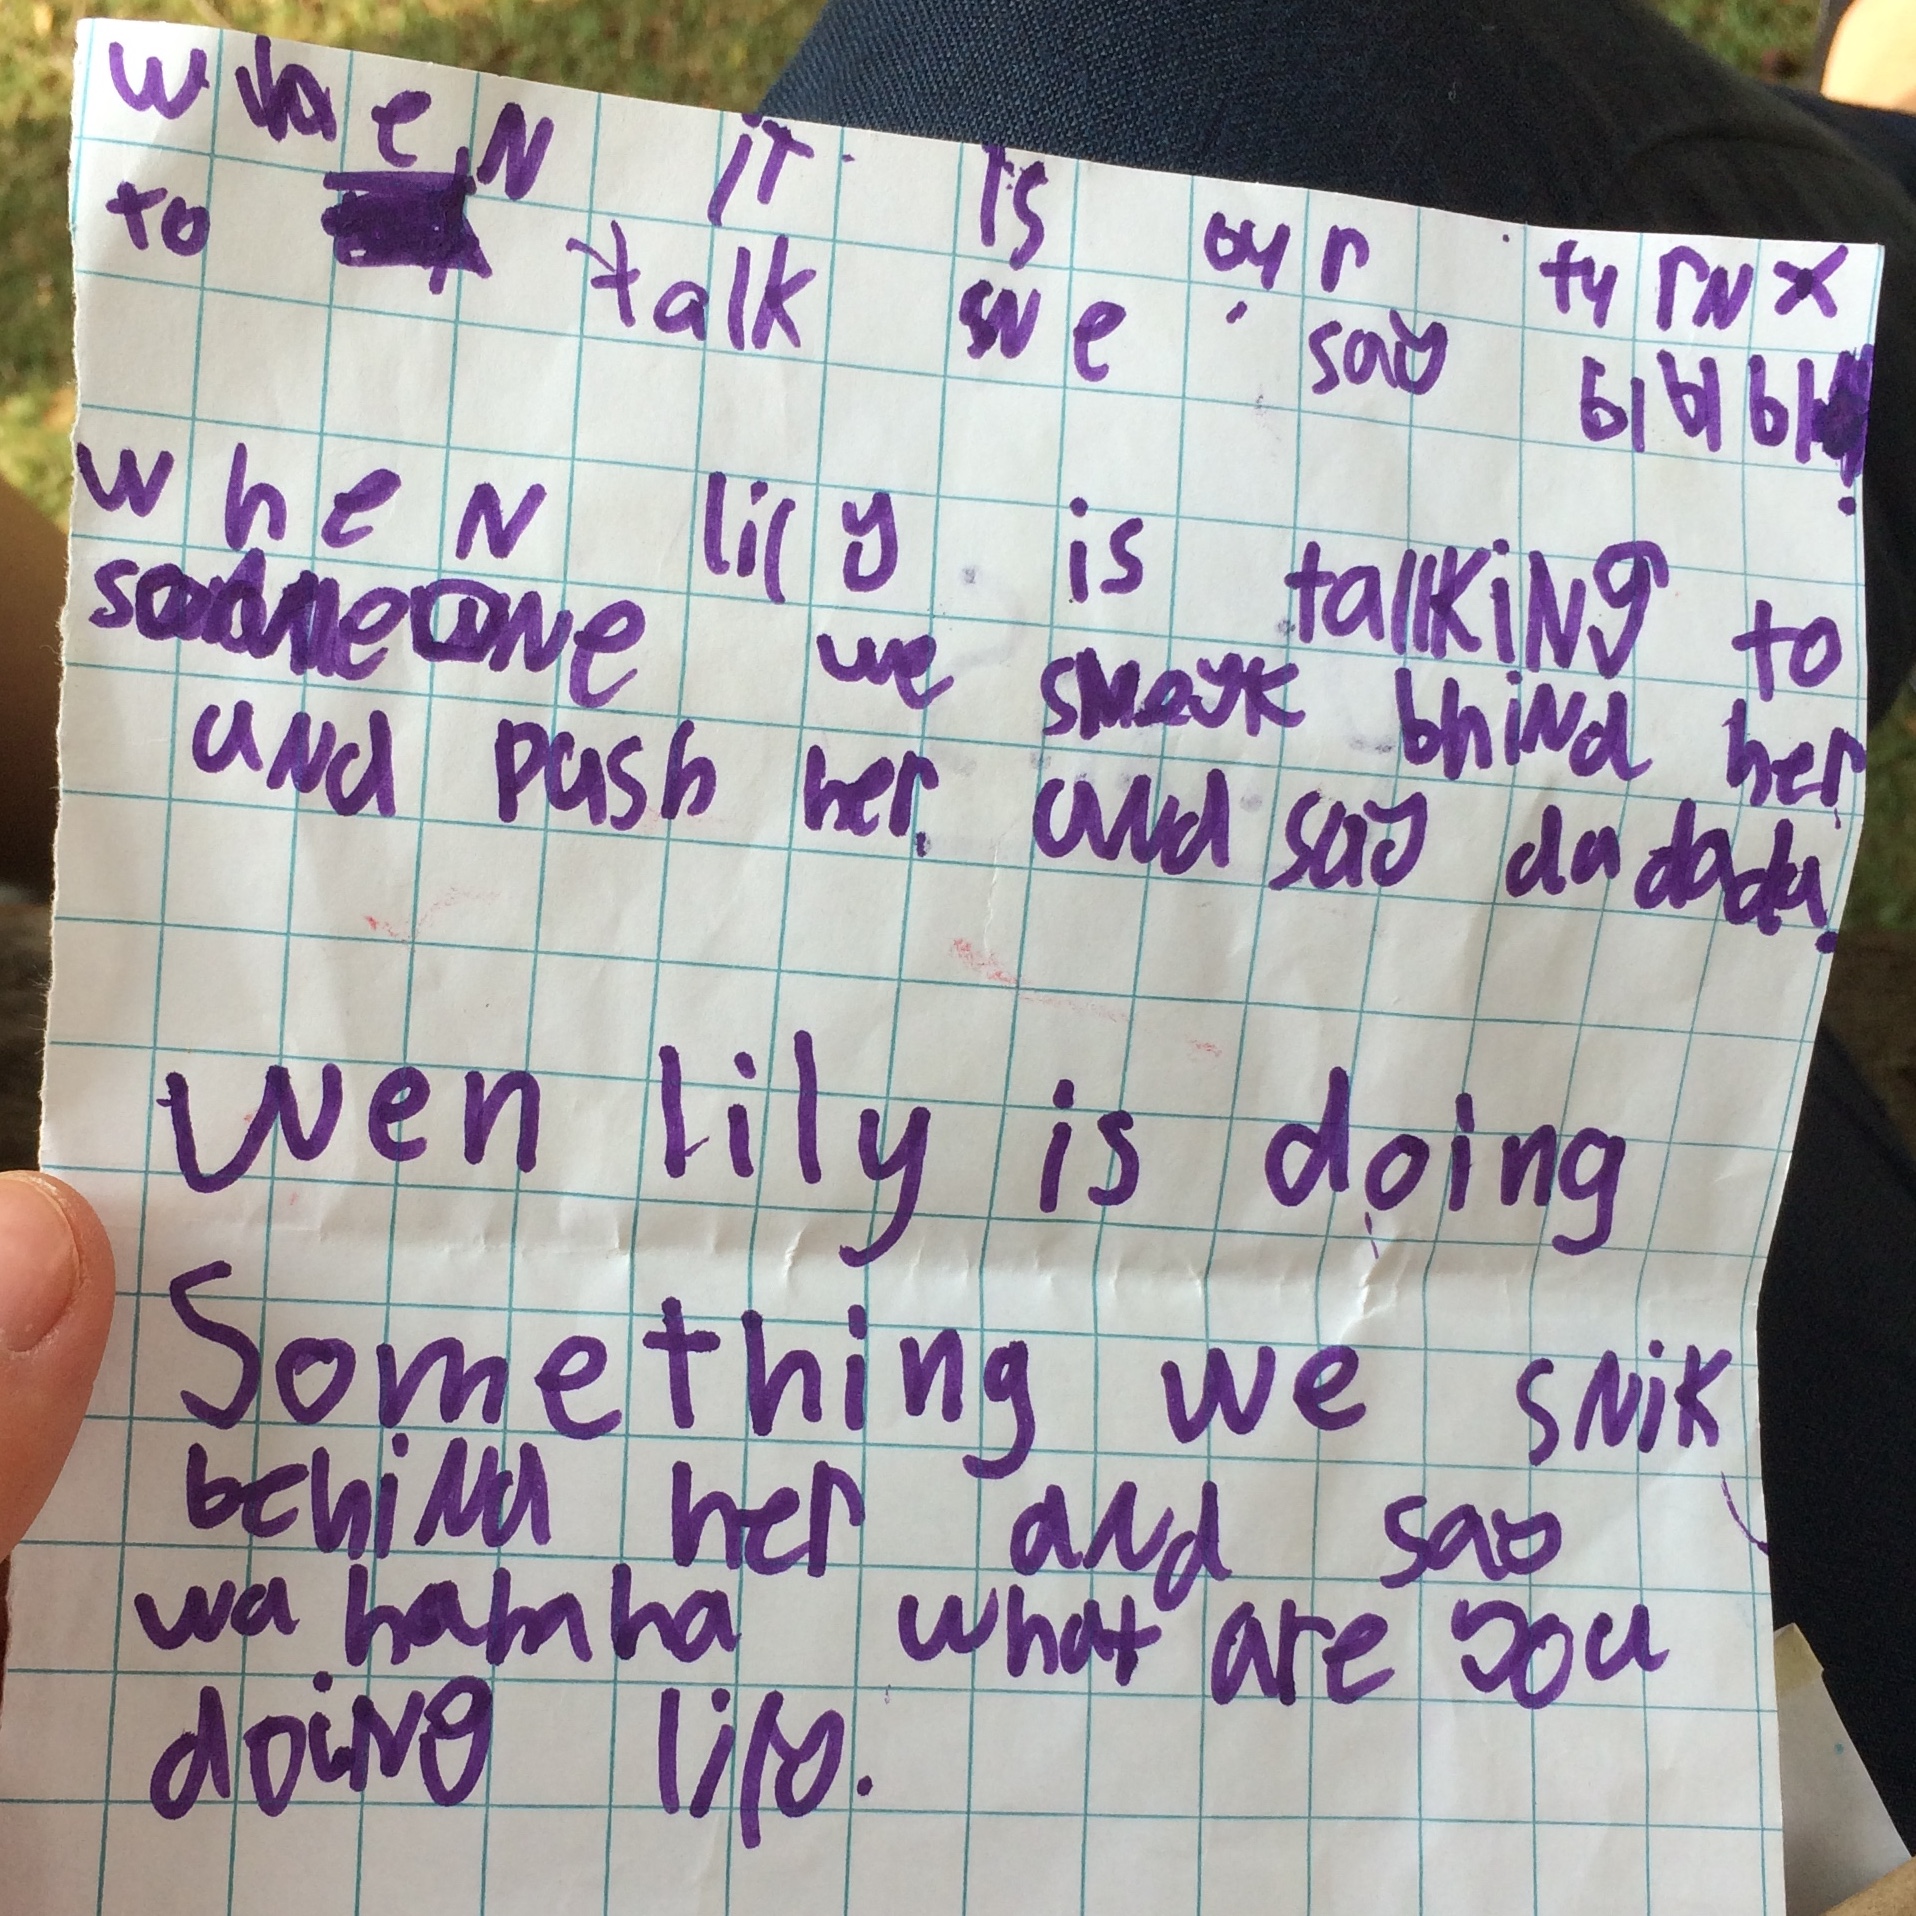 when it is oyr tyrn
to talk we say blblbl!
when lily is talking to
someone we sneyk bhind her
and push her. and say dadada!
wen lily is doing
Something we snik
behind her and say
wa hahaha what are you
doing lily.